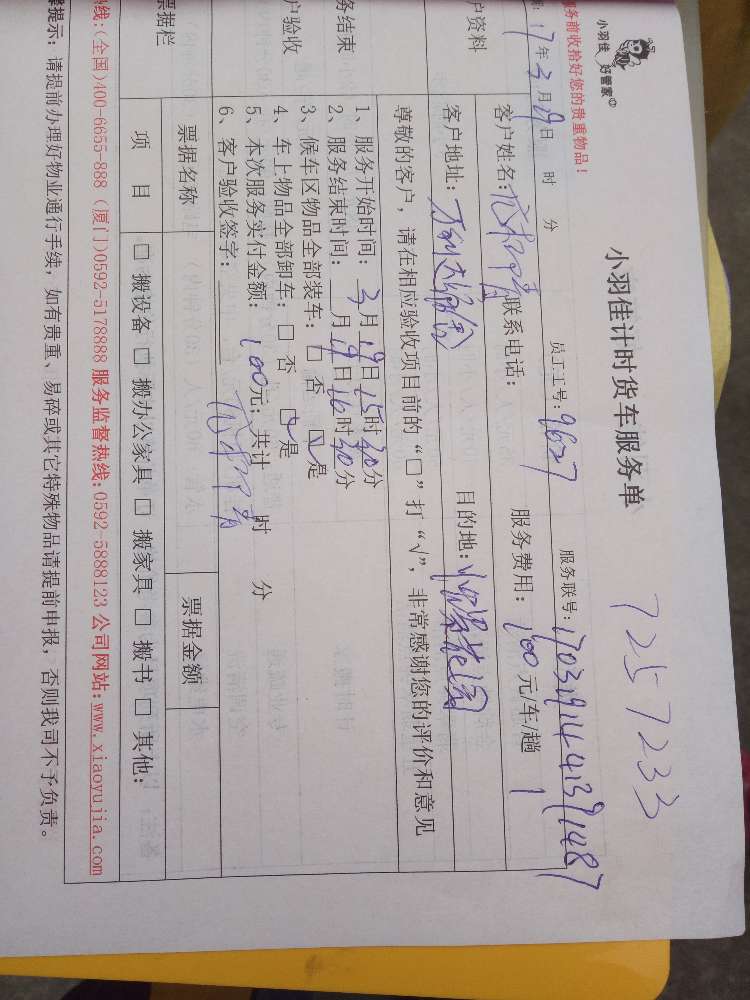 小羽佳 好管家
服务前收拾好您的贵重物品！
小羽佳计时货车服务单
7257233
17年3月19日 时 分
员工工号：9627
服务联号：17031914413971487
户资料
客户姓名：
联系电话：
服务费用：100元/车/趟 1
客户地址：
目的地：
尊敬的客户，请在相应验收项目前的“□”打“√”，非常感谢您的评价和意见
务结束
户验收
1、服务开始时间：3月19日15时40分
2、服务结束时间：月19日16时40分
3、候车区物品全部装车：□ 否 ☑ 是
4、车上物品全部卸车：□ 否 ☑ 是
5、本次服务实付金额：100元；共计 时 分
6、客户验收签字：
票据栏
票据名称
票据金额
项 目
□ 搬设备 □ 搬办公家具 □ 搬家具 □ 搬书 □ 其他：
热线：(全国)400-6655-888 (厦门)0592-5178888 服务监督热线：0592-5888123 公司网站：www.xiaoyujia.com
提示：请提前办理好物业通行手续，如有贵重、易碎或其它特殊物品请提前申报，否则我司不予负责。